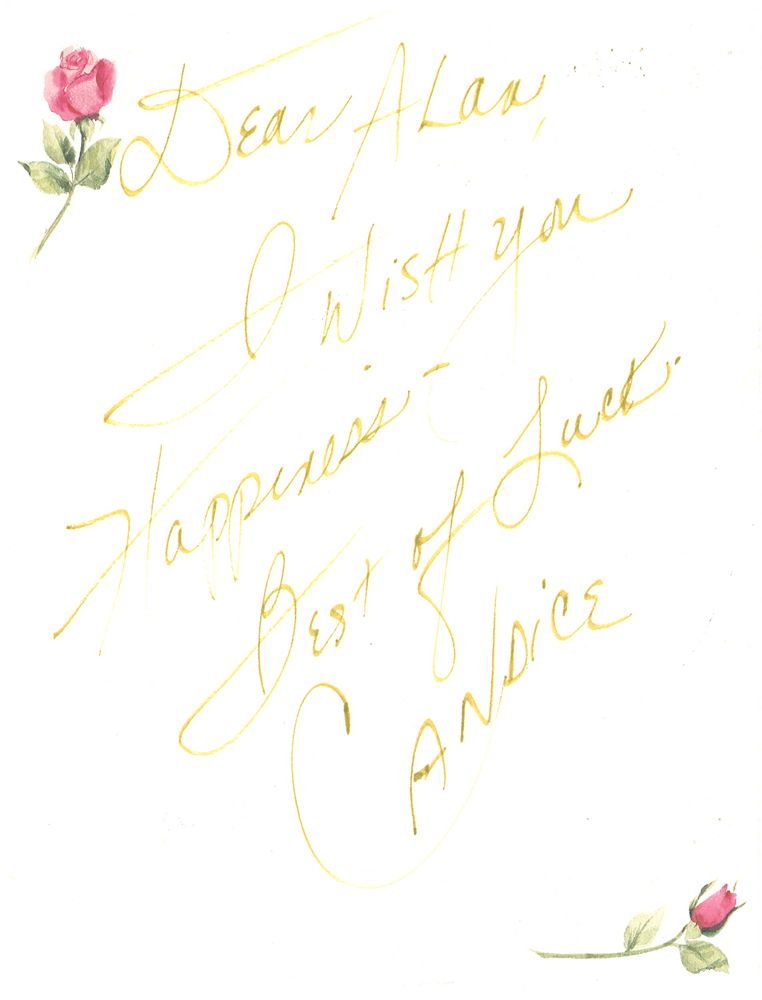 Dear Alan,
I Wish you
Happiness -
Best of Luck.
CANDICE